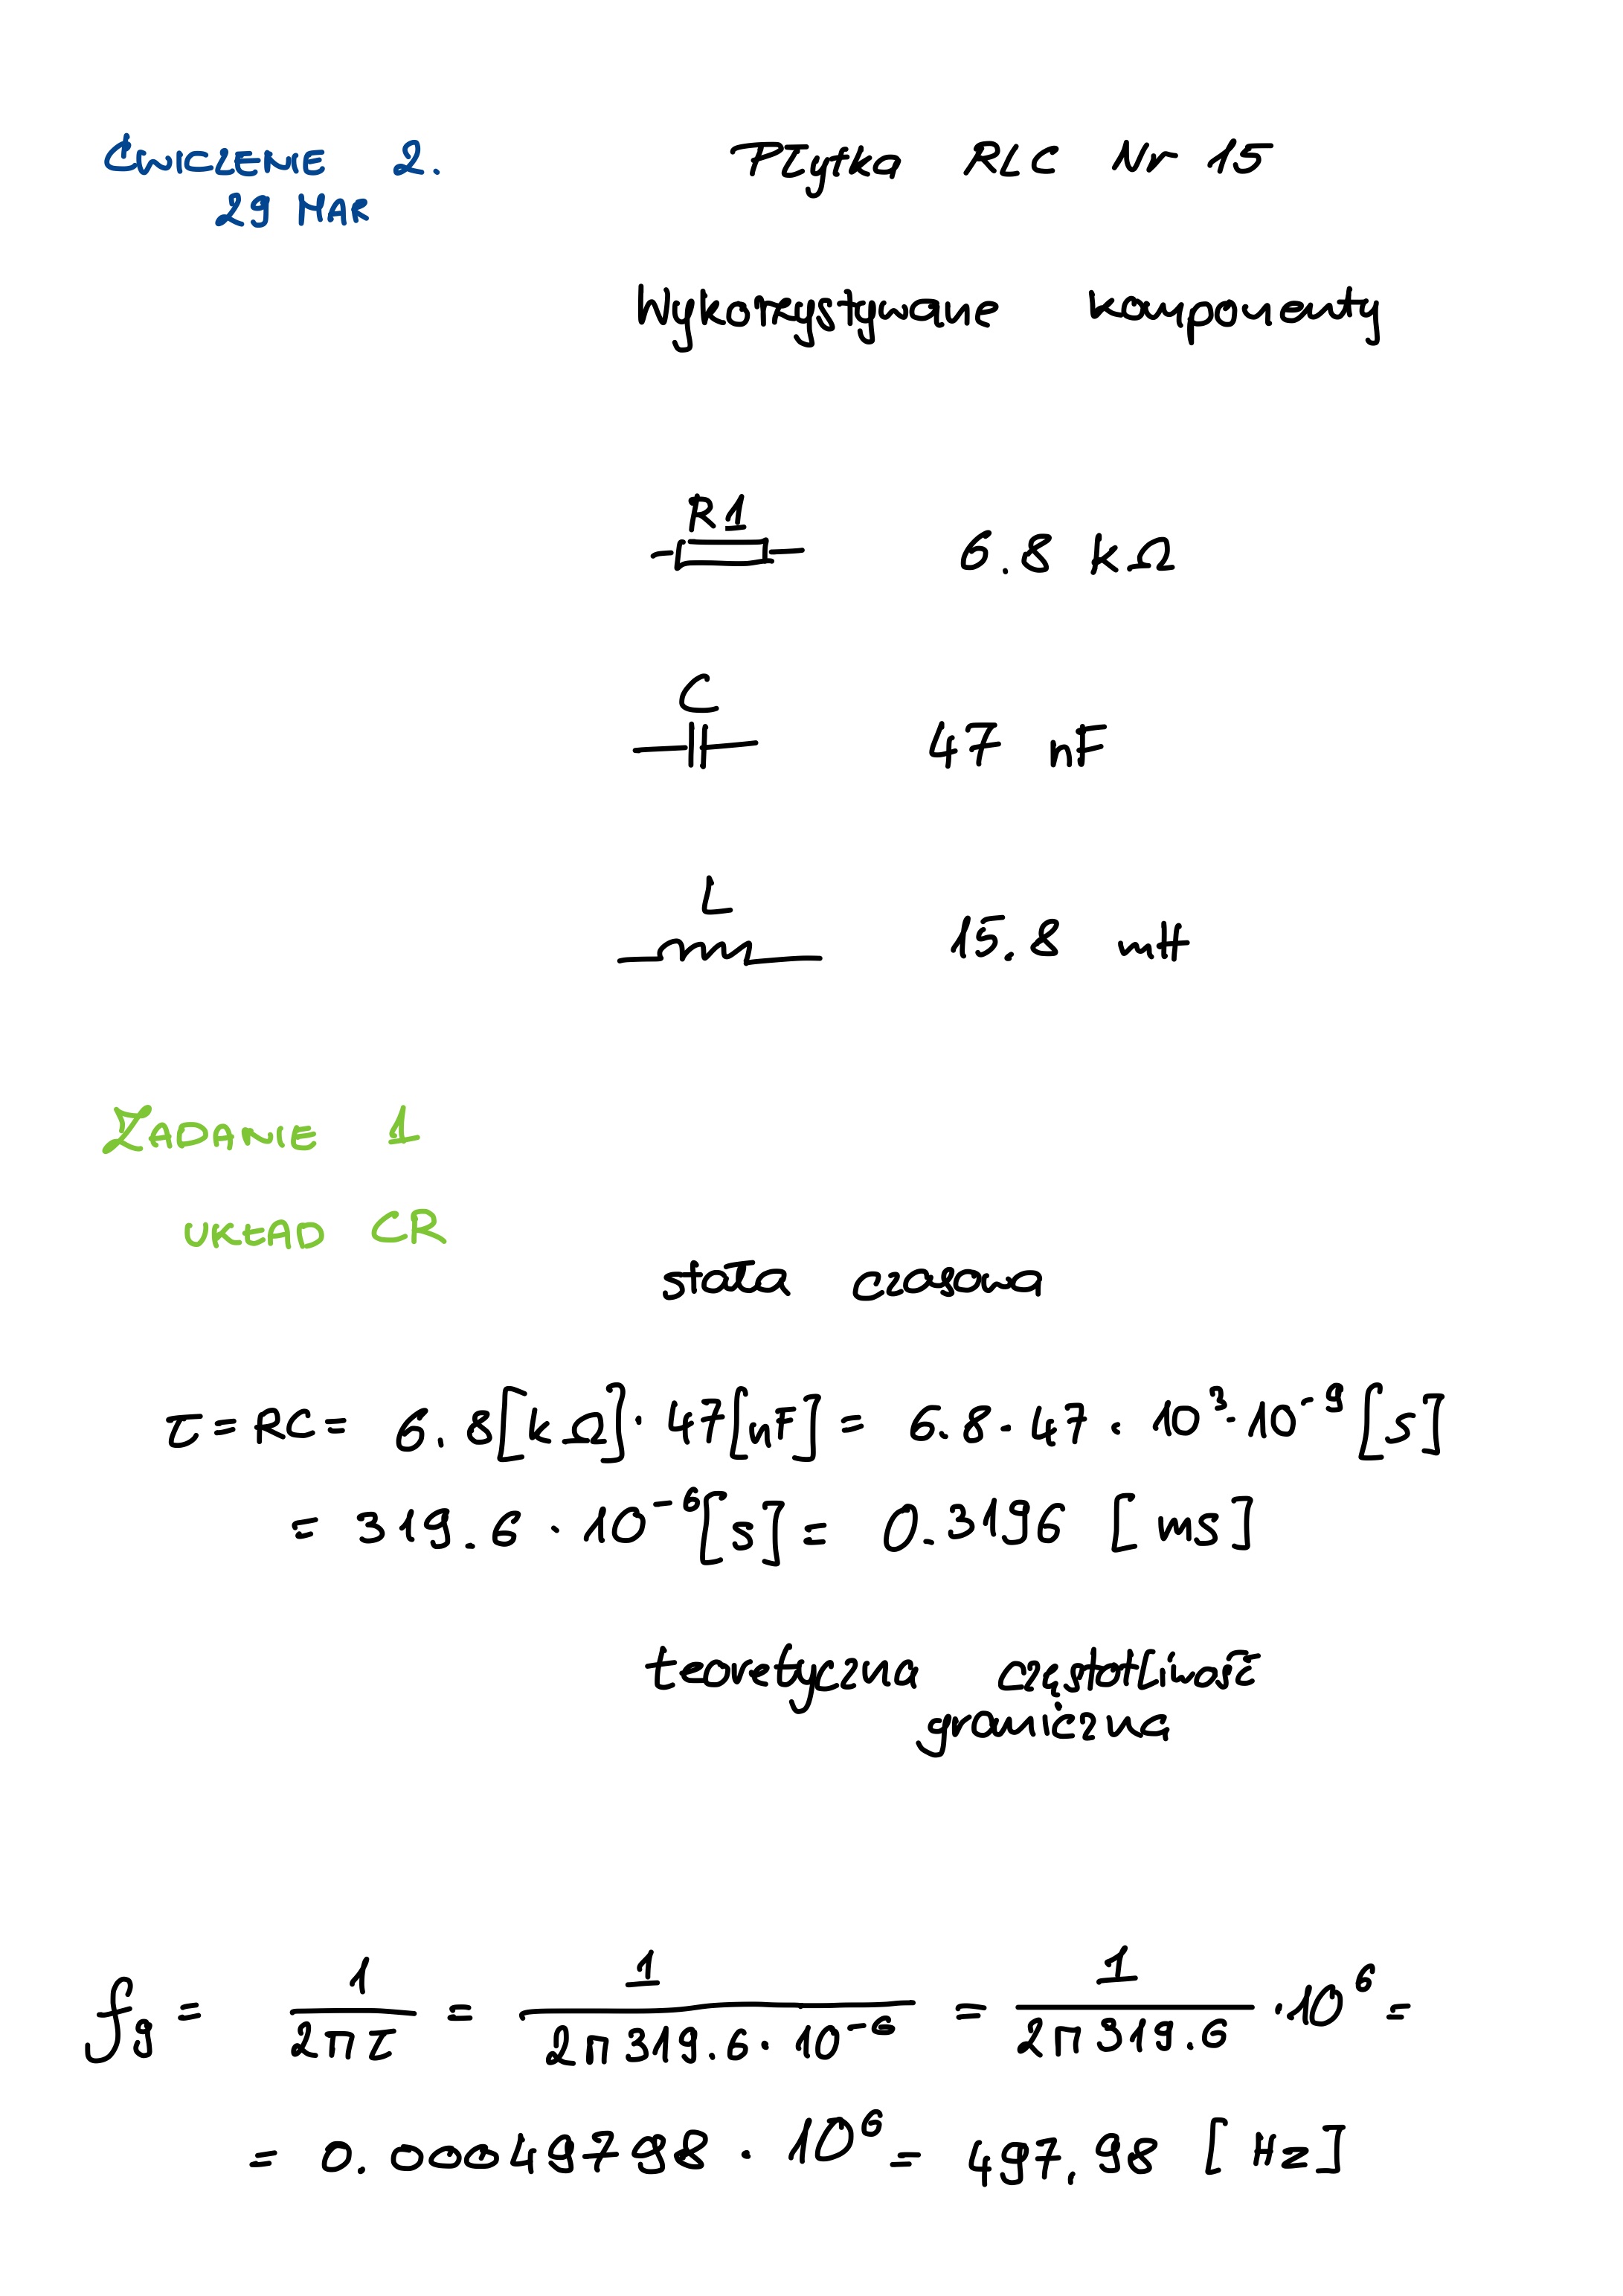 ĆWICZENIE 2.
29 MAR
Płytka RLC Nr 15
Wykorzystywane komponenty
R1
6.8 kΩ
C
47 nF
L
15.8 mH
ZADANIE 1
UKŁAD CR
stała czasowa
τ = RC = 6.8[kΩ] · 47[nF] = 6.8 · 47 · 10³ · 10⁻⁹ [s]
= 319.6 · 10⁻⁶ [s] = 0.3196 [ms]
teoretyczna częstotliwość
graniczna
fg = 1/(2πτ) = 1/(2π319.6 · 10⁻⁶) = 1/(2π319.6) · 10⁶ =
= 0.00049798 · 10⁶ = 497,98 [Hz]